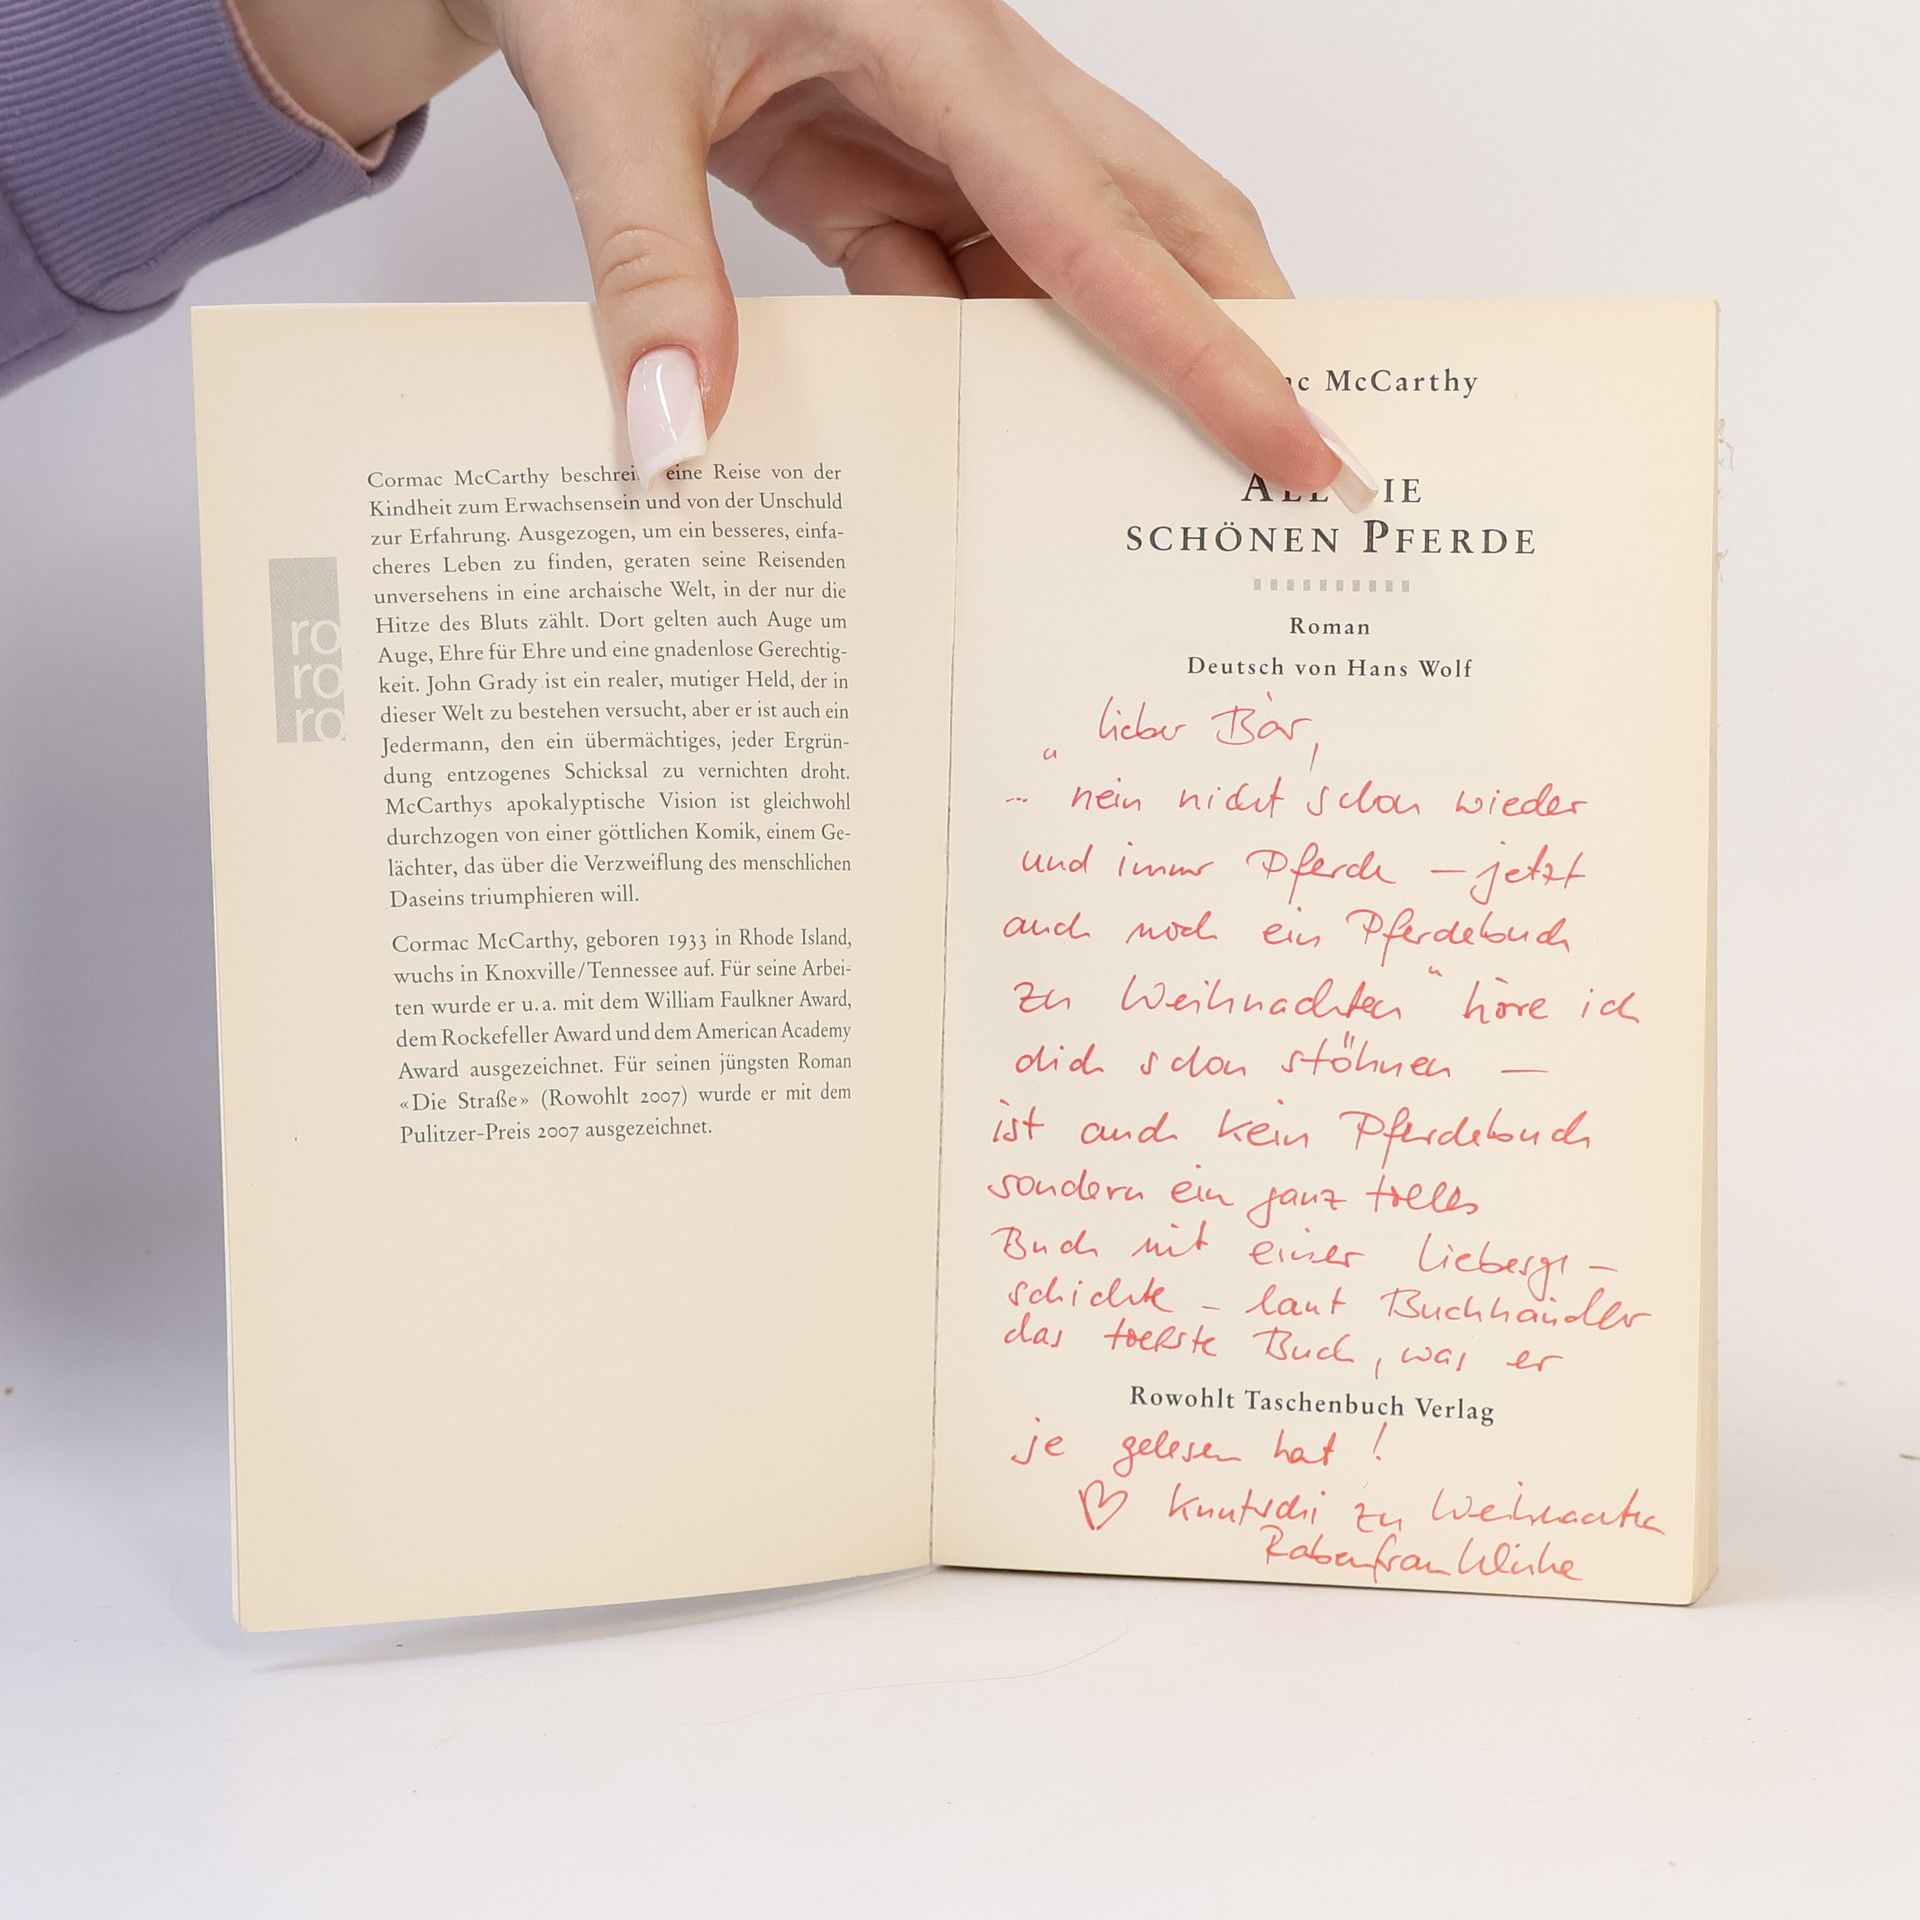 ro
ro
ro
Cormac McCarthy beschrei eine Reise von der
Kindheit zum Erwachsensein und von der Unschuld
zur Erfahrung. Ausgezogen, um ein besseres, einfa-
cheres Leben zu finden, geraten seine Reisenden
unversehens in eine archaische Welt, in der nur die
Hitze des Bluts zählt. Dort gelten auch Auge um
Auge, Ehre für Ehre und eine gnadenlose Gerechtig-
keit. John Grady ist ein realer, mutiger Held, der in
dieser Welt zu bestehen versucht, aber er ist auch ein
Jedermann, den ein übermächtiges, jeder Ergrün-
dung entzogenes Schicksal zu vernichten droht.
McCarthys apokalyptische Vision ist gleichwohl
durchzogen von einer göttlichen Komik, einem Ge-
lächter, das über die Verzweiflung des menschlichen
Daseins triumphieren will.
Cormac McCarthy, geboren 1933 in Rhode Island,
wuchs in Knoxville/Tennessee auf. Für seine Arbei-
ten wurde er u. a. mit dem William Faulkner Award,
dem Rockefeller Award und dem American Academy
Award ausgezeichnet. Für seinen jüngsten Roman
«Die Straße» (Rowohlt 2007) wurde er mit dem
Pulitzer-Preis 2007 ausgezeichnet.
McCarthy
SCHÖNEN PFERDE
Roman
Deutsch von Hans Wolf
lieber Bär,
„... nein nicht schon wieder
und immer Pferde – jetzt
auch noch ein Pferdebuch
zu Weihnachten" höre ich
dich schon stöhnen –
ist auch kein Pferdebuch
sondern ein ganz tolles
Buch mit einer Liebesge-
schichte – laut Buchhändler
das tollste Buch, was er
Rowohlt Taschenbuch Verlag
je gelesen hat!
♡ Knutschi zu Weihnachten
Rabenfrau